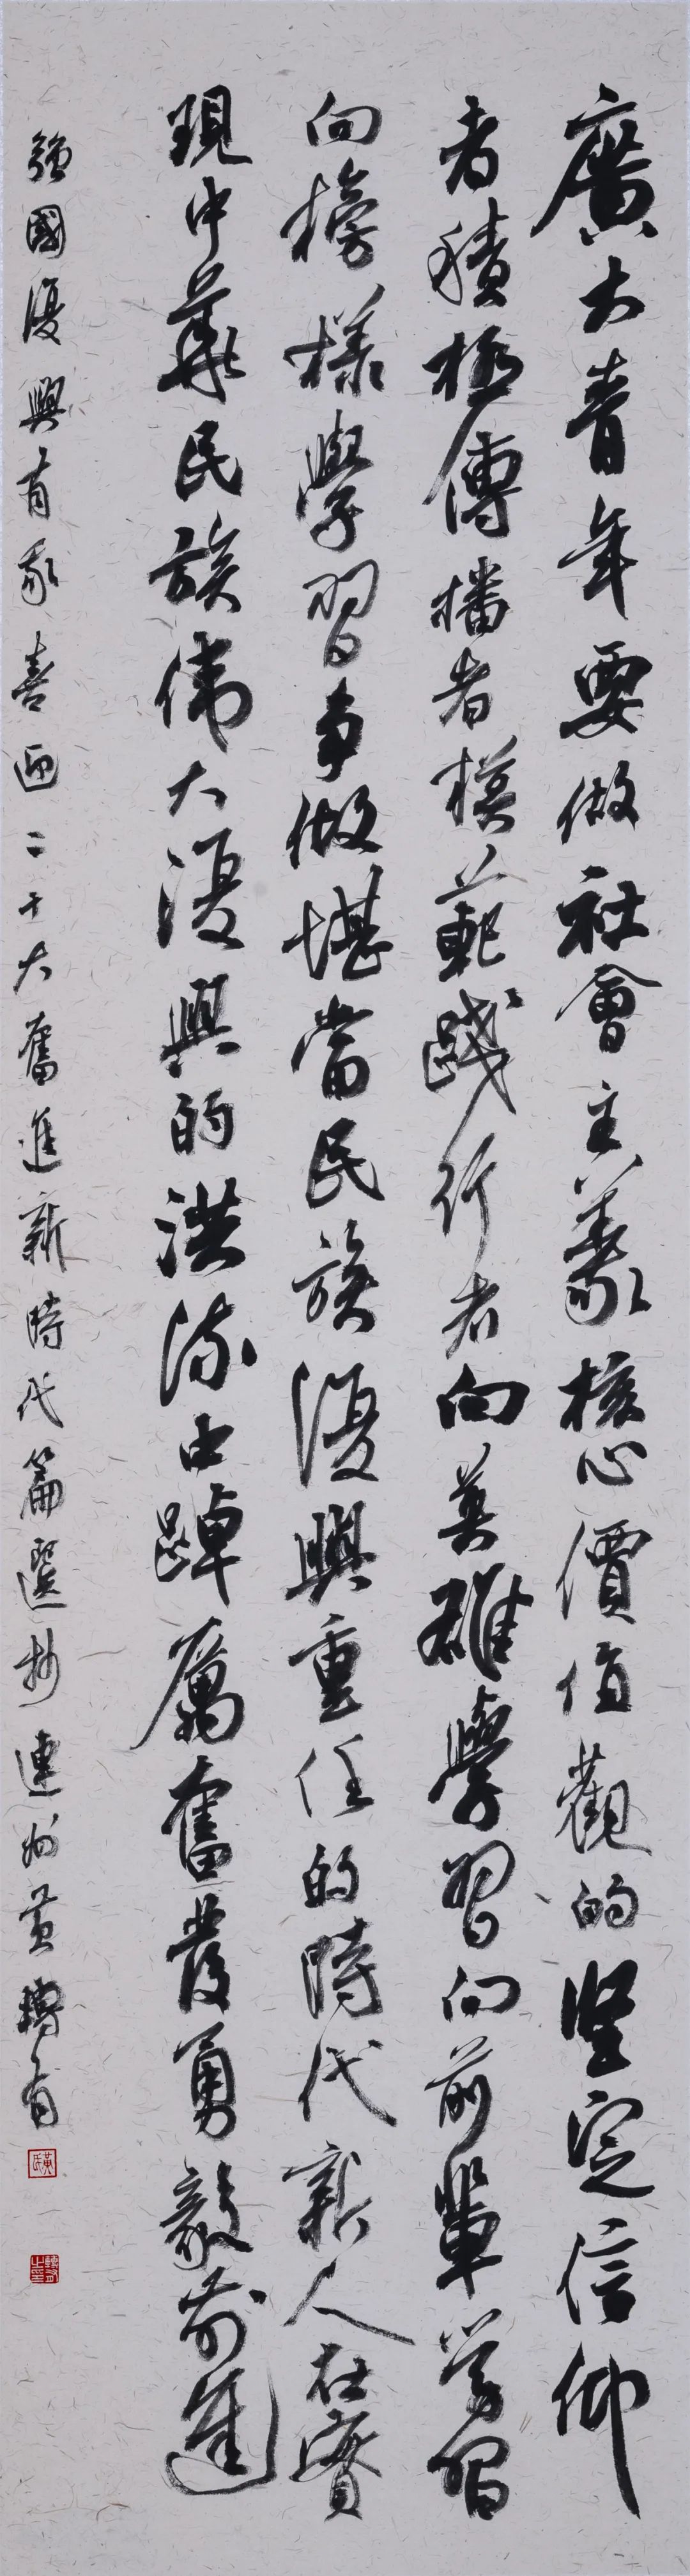 廣大青年要做社會主義核心價值觀的堅定信仰
者積極傳播者模範踐行者向英雄學習向前輩学習
向榜樣學習争做堪當民族復興重任的時代新人在實
現中華民族偉大復興的洪流中踔厲奮發勇毅前進
強國復興有我喜迎二十大奮進新時代篇選抄連州黄有
黄氏